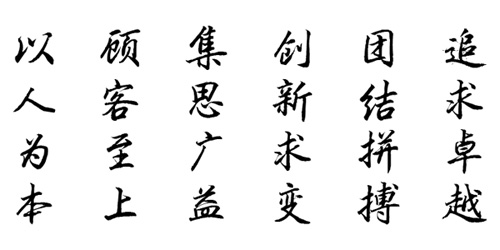 以人为本
顾客至上
集思广益
创新求变
团结拼搏
追求卓越